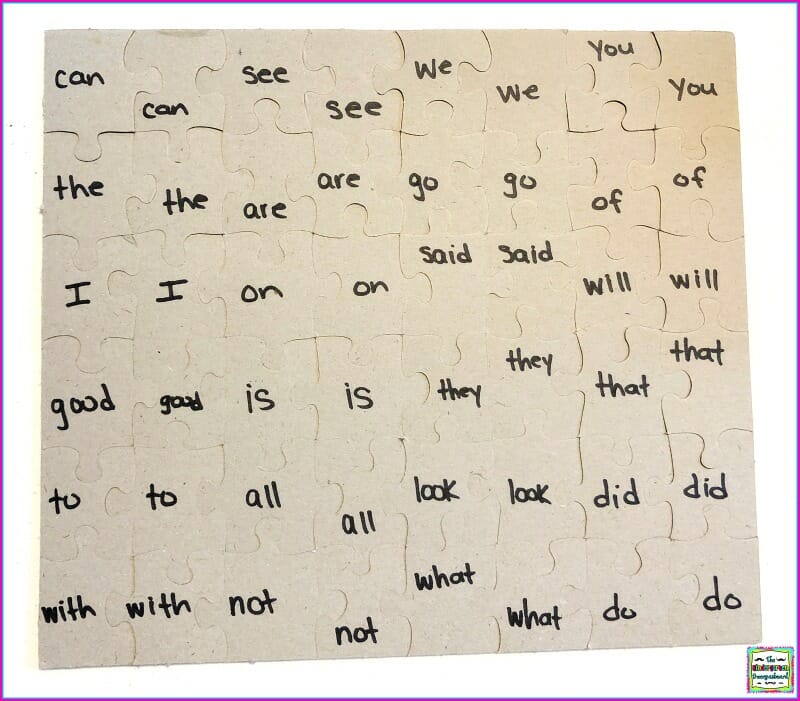 can can see see we we you you
the the are are go go of of
I I on on said said will will
good good is is they they that that
to to all all look look did did
with with not not what what do do
the